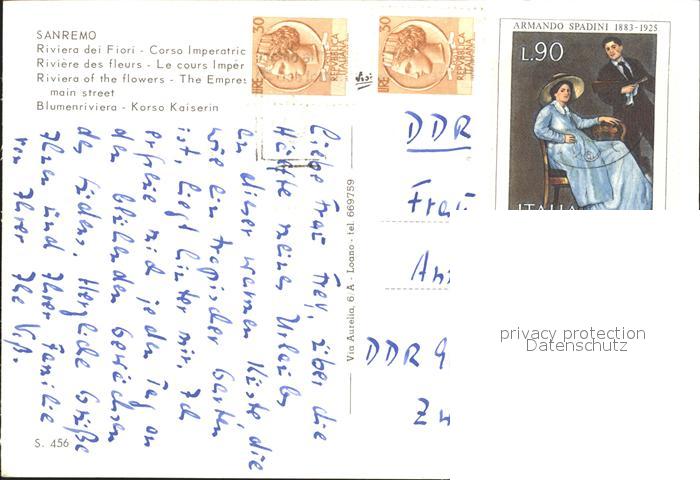 SANREMO
Riviera dei Fiori - Corso Imperatric
Rivière des fleurs - Le cours Impér
Riviera of the flowers - The Empres
main street
Blumenriviera - Korso Kaiserin
LIRE 30
REPVBBLICA ITALIANA
LIRE 30
REPVBBLICA ITALIANA
ARMANDO SPADINI 1883-1925
L.90
ITALIA
Liebe Frau Frey, über die
Hälfte meines Urlaubs
an dieser warmen Küste, die
wie ein tropischer Garten
ist, liegt hinter mir. Ich
erfreue mich jeden Tag an
den blühenden Gewächsen
des Südens. Herzliche Grüße
Ihnen und Ihrer Familie
von Ihrer
Via Aurelia, 6 A - Loano - tel. 669759
DDR
Frau
DDR 9
Zw
S. 456
privacy protection
Datenschutz